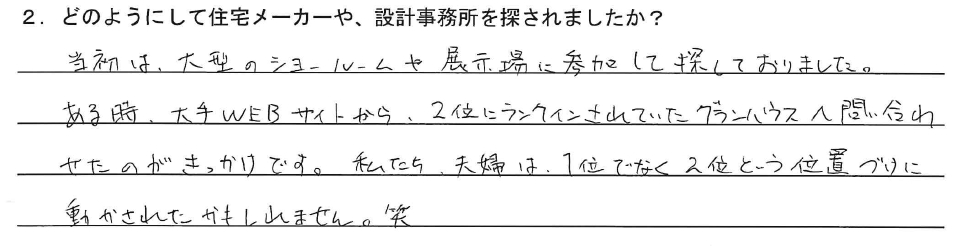 2. どのようにして住宅メーカーや、設計事務所を探されましたか?
当初は、大型のショールームや展示場に参加して探しておりました。
ある時、大手WEBサイトから、2位にランクインされていたグランハウスへ問い合わ
せたのがきっかけです。私たち、夫婦は、1位でなく2位という位置づけに
動かされたかもしれません。笑